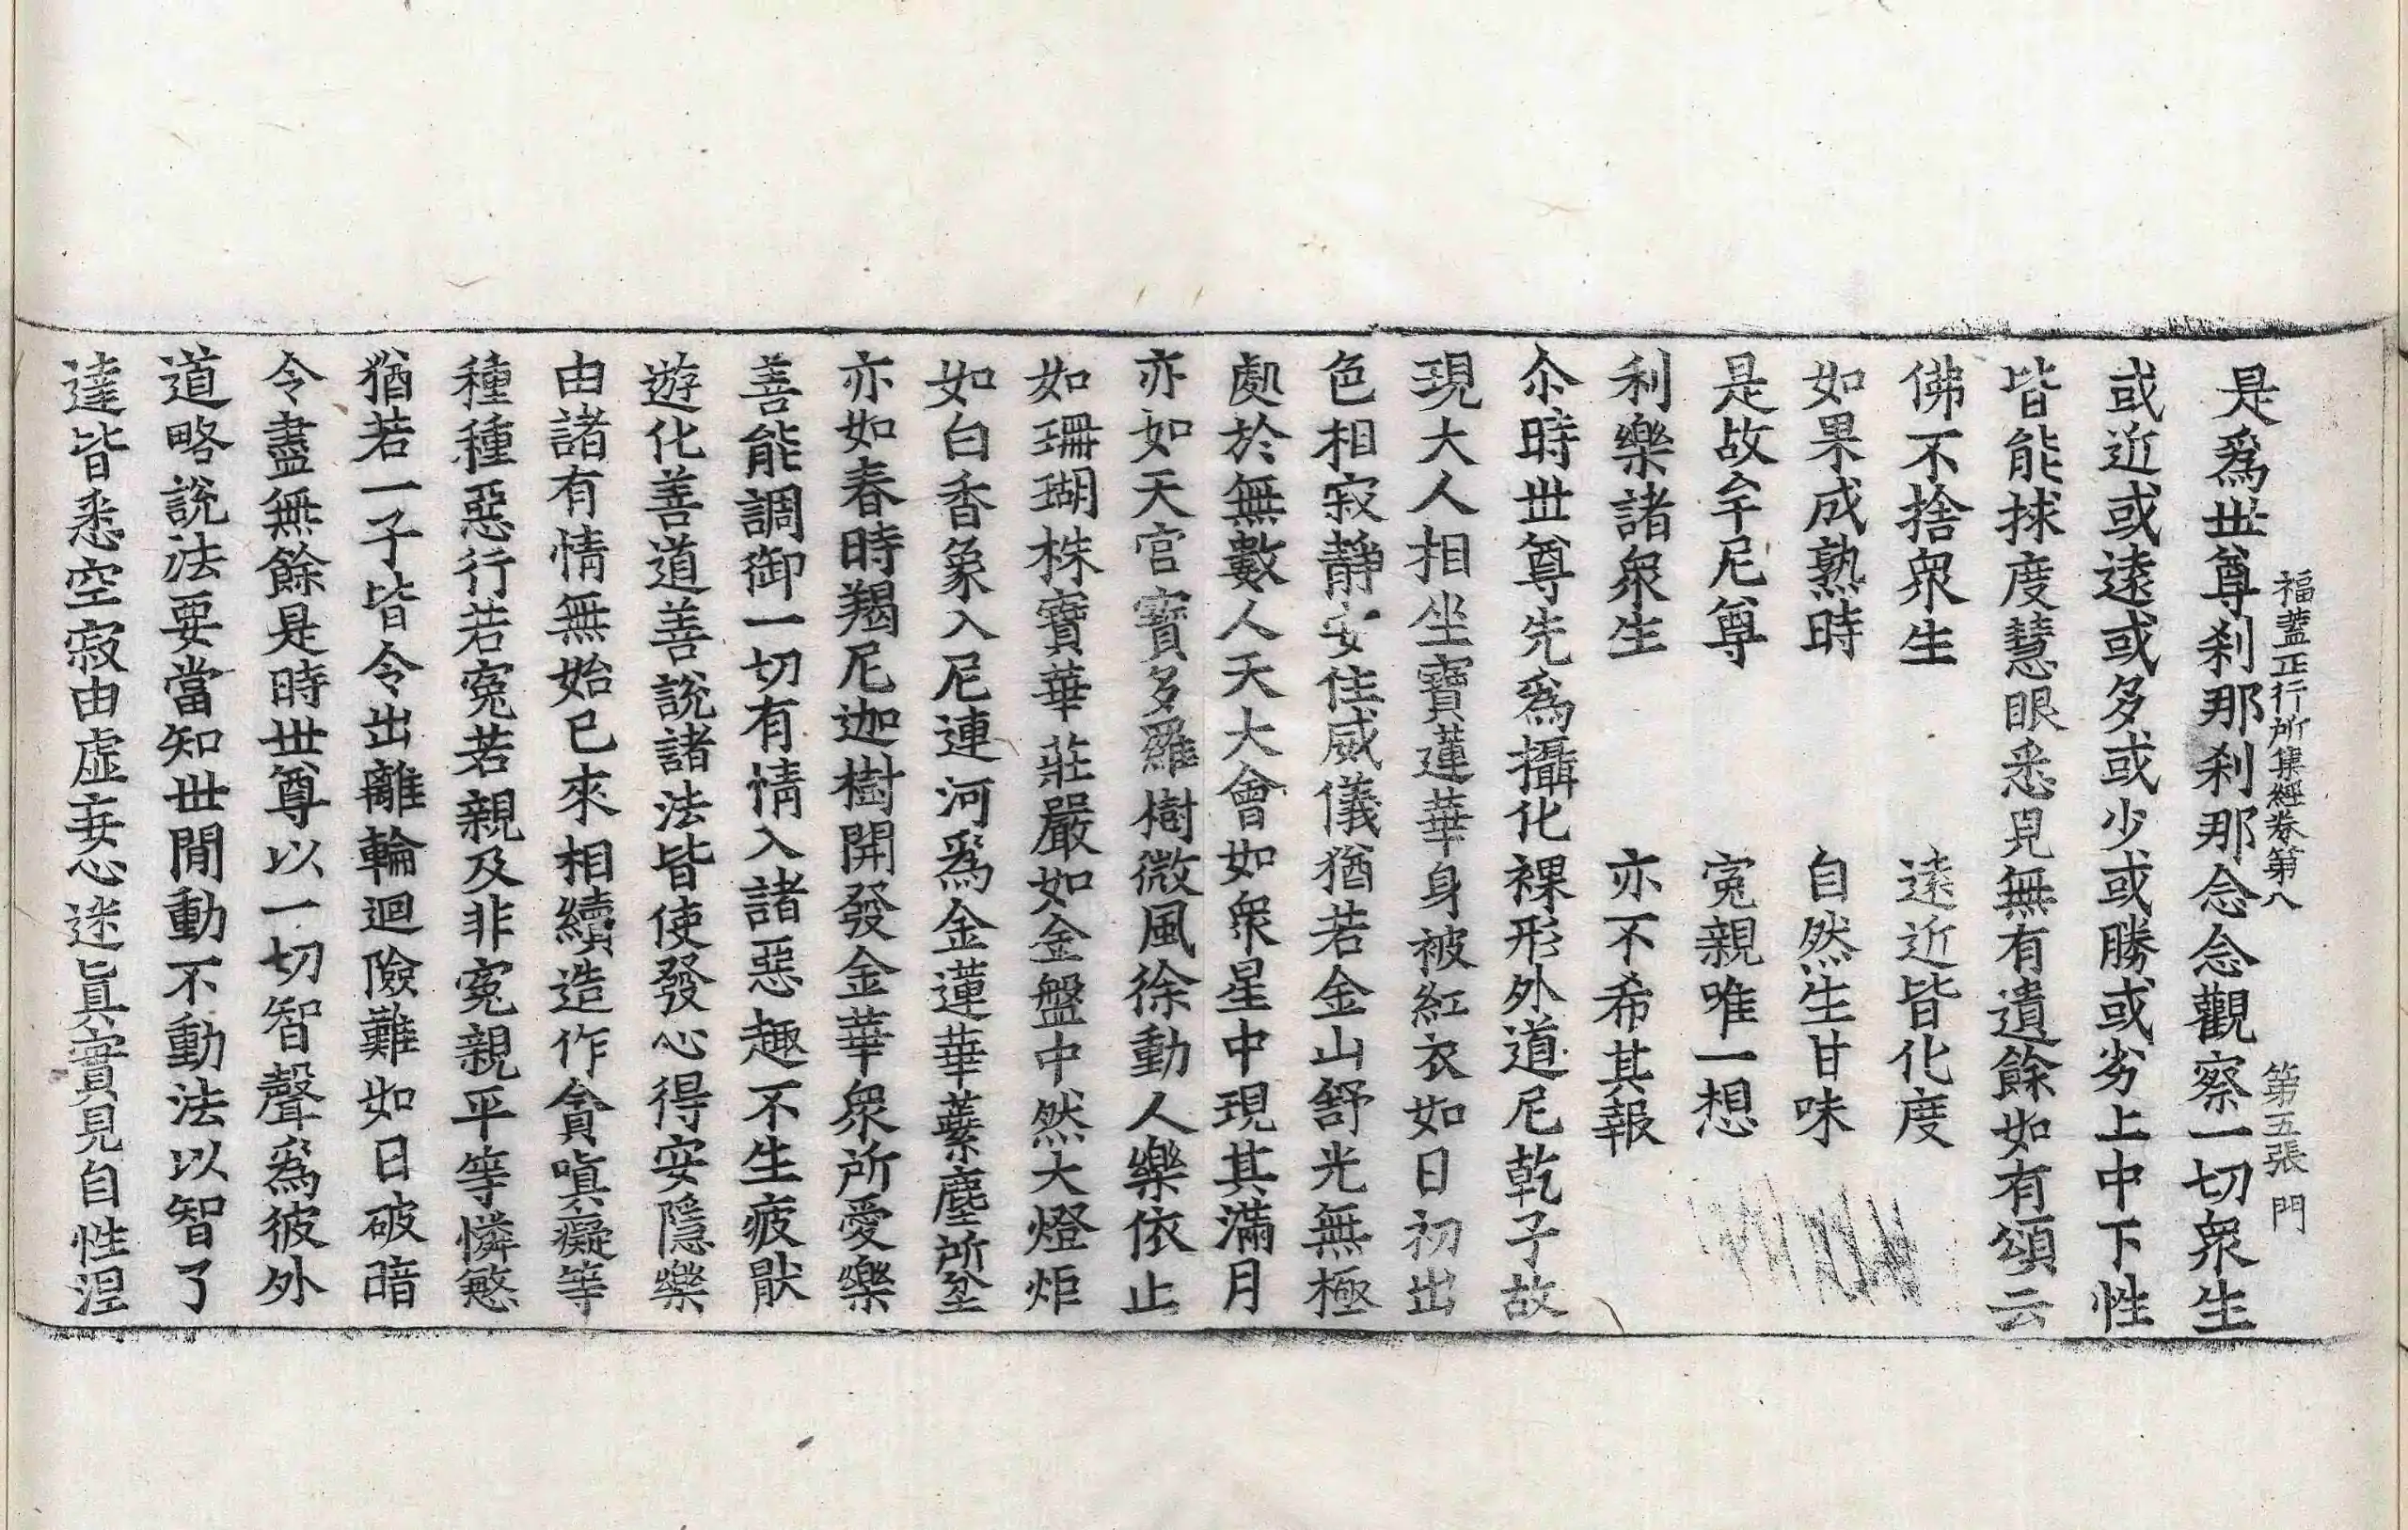 福蓋正行所集經卷第八　第五張　門
是爲世尊刹那刹那念念觀察一切衆生
或近或遠或多或少或勝或劣上中下性
皆能捄度慧眼悉見無有遺餘如有頌云
佛不捨衆生　遠近皆化度
如果成熟時　自然生甘味
是故牟尼尊　寃親唯一想
利樂諸衆生　亦不希其報
尒時世尊先爲攝化裸形外道尼乾子故
現大人相坐寶蓮華身被紅衣如日初出
色相寂靜安住威儀猶若金山舒光無極
處於無數人天大會如衆星中現其滿月
亦如天宮寶多羅樹微風徐動人樂依止
如珊瑚株寶華莊嚴如金盤中然大燈炬
如白香象入尼連河爲金蓮華蘂塵所坌
亦如春時羯尼迦樹開發金華衆所愛樂
善能調御一切有情入諸惡趣不生疲猒
遊化善道善說諸法皆使發心得安隱樂
由諸有情無始已來相續造作貪嗔癡等
種種惡行若寃若親及非寃親平等憐愍
猶若一子皆令出離輪迴險難如日破暗
令盡無餘是時世尊以一切智聲爲彼外
道略說法要當知世閒動不動法以智了
達皆悉空寂由虛妄心迷眞實見自性涅